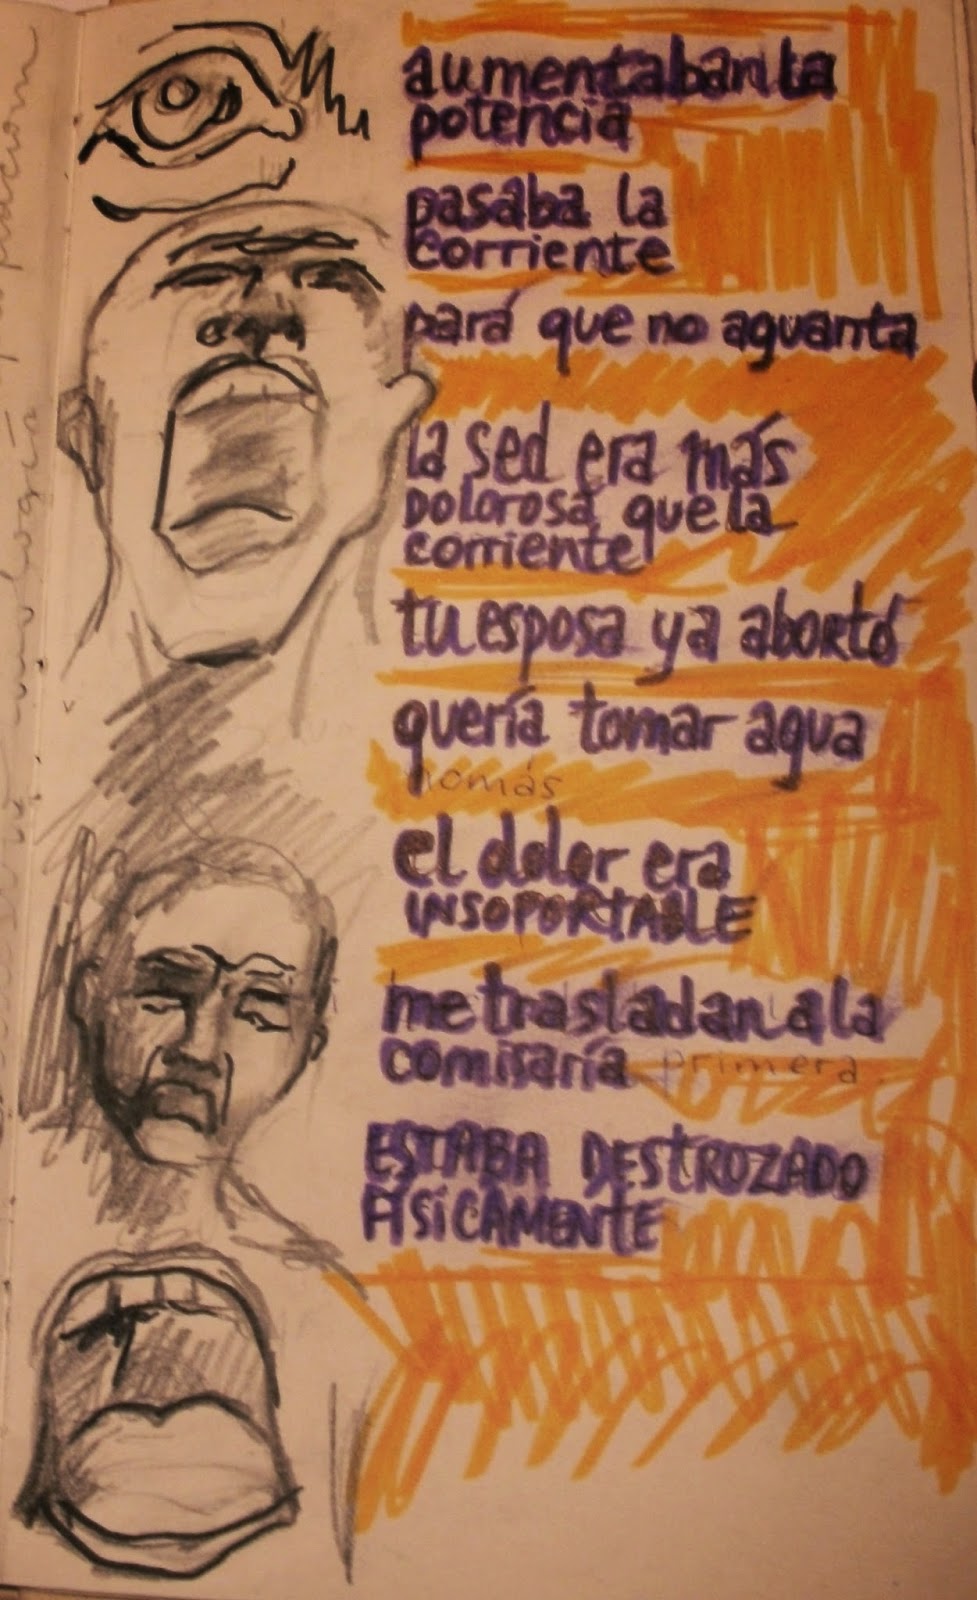 aumentaban la
potencia
pasaba la
corriente
pará que no aguanta
la sed era más
dolorosa que la
corriente
tu esposa ya abortó
quería tomar agua
nomás
el dolor era
INSOPORTABLE
me trasladan a la
comisaría primera.
ESTABA DESTROZADO
FÍSICAMENTE